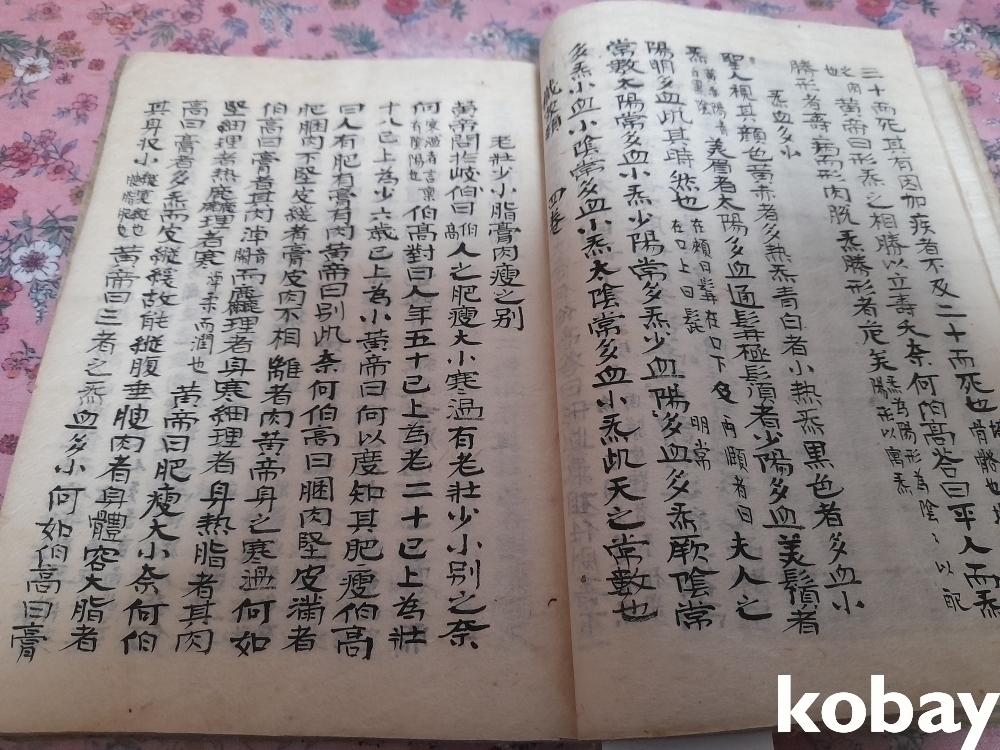 三十而死其有因加疾者不及二十而死也 骨骼也
也 肉 黃帝曰形炁之相勝以立壽夭奈何伯高答曰平人而炁
勝形者壽病而形肉脫炁勝形者危矣 炁為陽形為陰〻以配 陽形以寓炁
炁血多小
聖人視其顔色黃赤者多熱炁青白者小熱炁黑色者多血小
炁 美眉者太陽多血通髯極鬚者少陽多血美鬚者
陽明多血此其時然也 在頰曰髯在口下及兩頤者曰 在口上曰髭 夫人之
常數太陽常多血小炁少陽常多炁少血陽明常多血多炁厥陰常
多炁小血小陰常多血小炁太陰常多血小炁此天之常數也
四卷
老壯少小脂膏肉瘦之別
黃帝問於岐伯曰 伯高 人之肥瘦大小寒温有老壯少小別之奈
何 伯高對曰人年五十已上為老二十已上為壯
十八已上為少六歲已上為小黃帝曰何以度知其肥瘦伯高
曰人有肥有膏有肉黃帝曰別此奈何伯高曰䐃肉堅皮滿者
肥䐃肉不堅皮緩者膏皮肉不相離者肉黃帝身之寒溫何如
伯高曰膏者其肉淖 而麤理者身寒細理者身熱脂者其肉
堅細理者熱麤理者寒 淖柔而潤也 黃帝曰肥瘦大小奈何伯
高曰膏者多炁而皮縱緩故能縱腹垂腴肉者身體容大脂者
其身收小 黃帝曰三者之炁血多小何如伯高曰膏
kobay